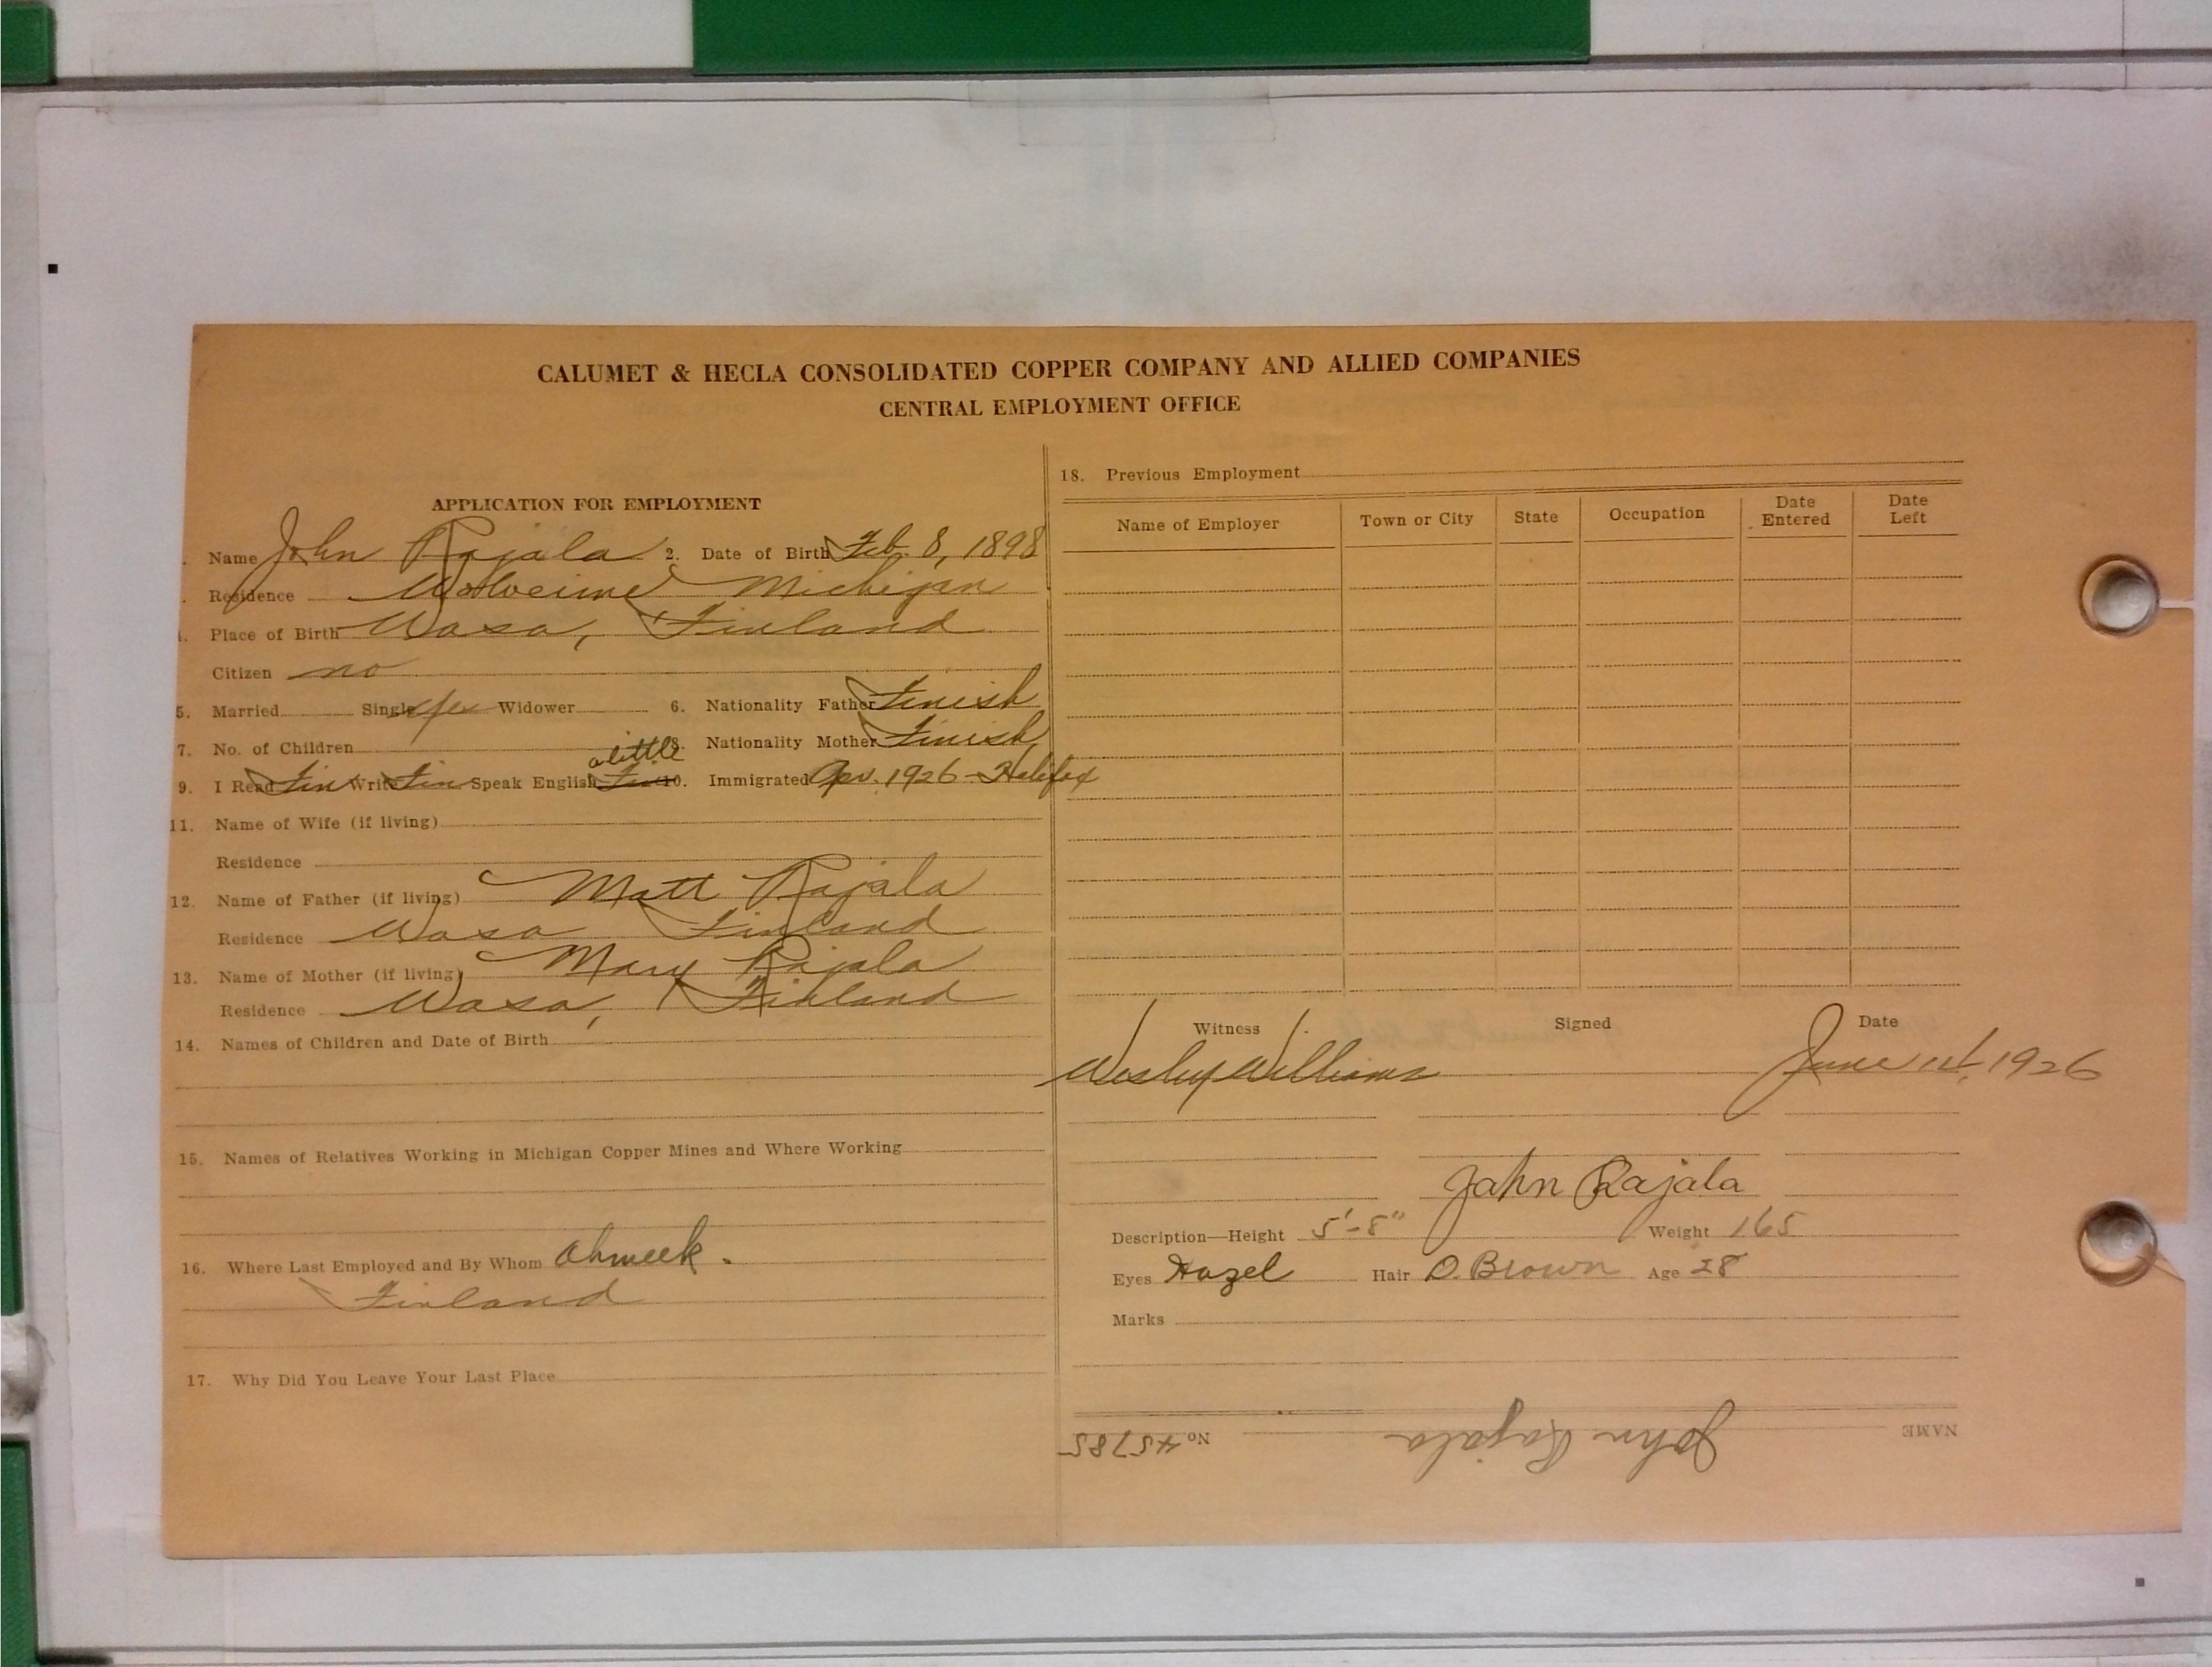 CALUMET & HECLA CONSOLIDATED COPPER COMPANY AND ALLIED COMPANIES
CENTRAL EMPLOYMENT OFFICE
APPLICATION FOR EMPLOYMENT
Name John Rajala 2. Date of Birth Feb. 8, 1898
Residence Wolverine Michigan
Place of Birth Wasa, Finland
Citizen no
5. Married Single yes Widower 6. Nationality Father Finish
7. No. of Children 8. Nationality Mother Finish
a little
9. I Read Fin Write Fin Speak English Fin 10. Immigrated Apr. 1926 - Halifax
11. Name of Wife (if living)
Residence
12. Name of Father (if living) Matt Rajala
Residence Wasa Finland
13. Name of Mother (if living) Mary Rajala
Residence Wasa, Finland
14. Names of Children and Date of Birth
15. Names of Relatives Working in Michigan Copper Mines and Where Working
16. Where Last Employed and By Whom Ahmeek.
Finland
17. Why Did You Leave Your Last Place
18. Previous Employment
Name of Employer Town or City State Occupation Date Entered Date Left
Witness Signed Date
Wesley Williams June 1st, 1926
John Rajala
Description—Height 5'-8" Weight 165
Eyes Hazel Hair D. Brown Age 28
Marks
NAME John Rajala No. 45785